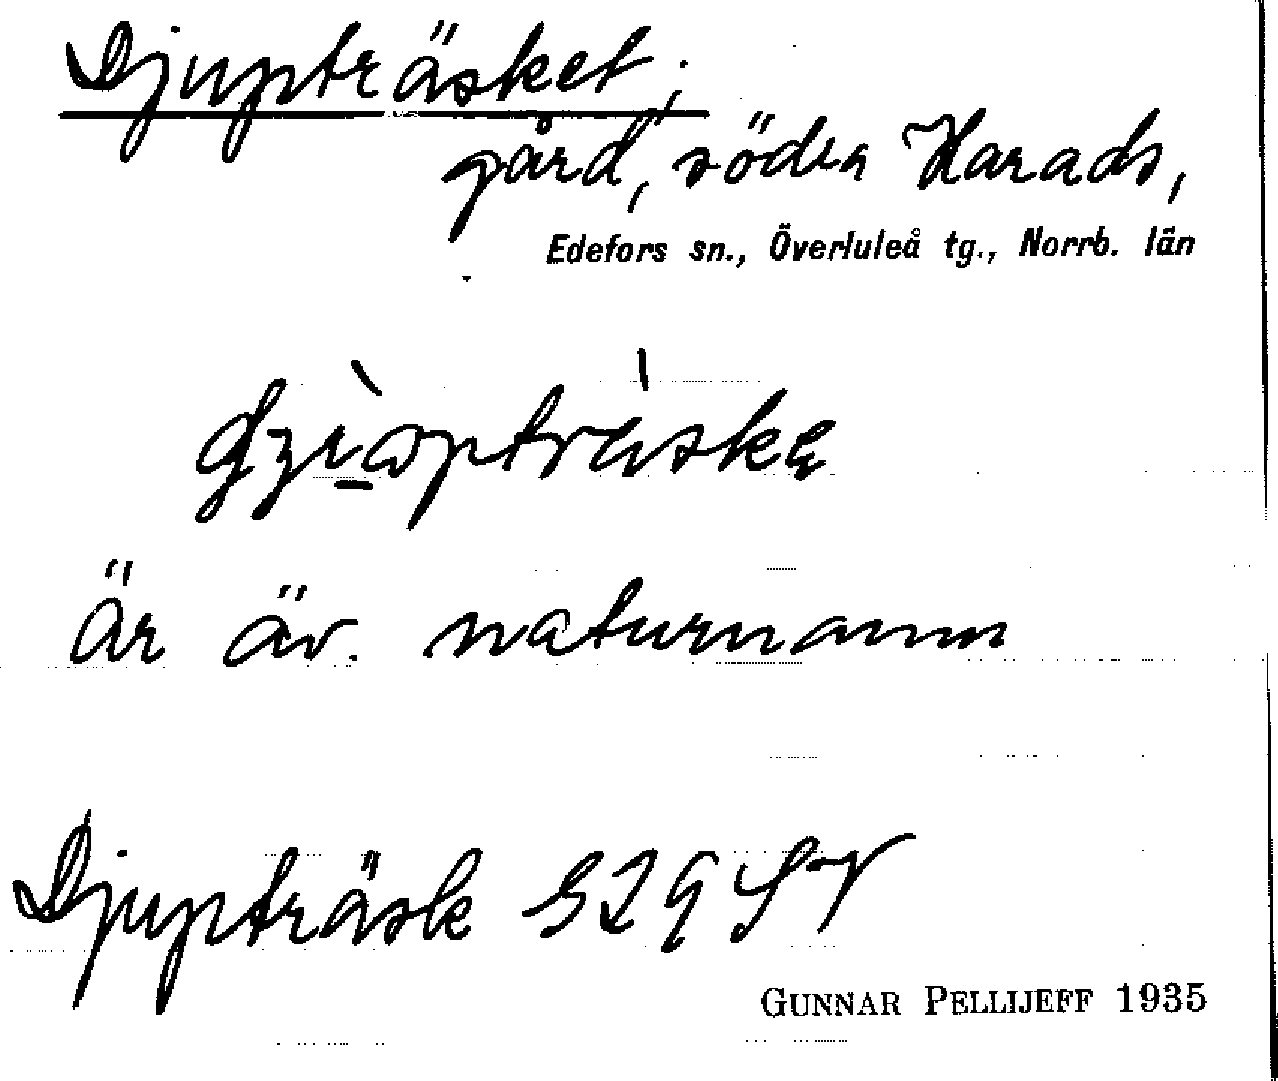 Djupträsket;
gård, södra Harads,
Edefors sn., Överluleå tg., Norrb. län
är äv. naturnamn
Djupträsk S29 SV
GUNNAR PELLIJEFF 1935